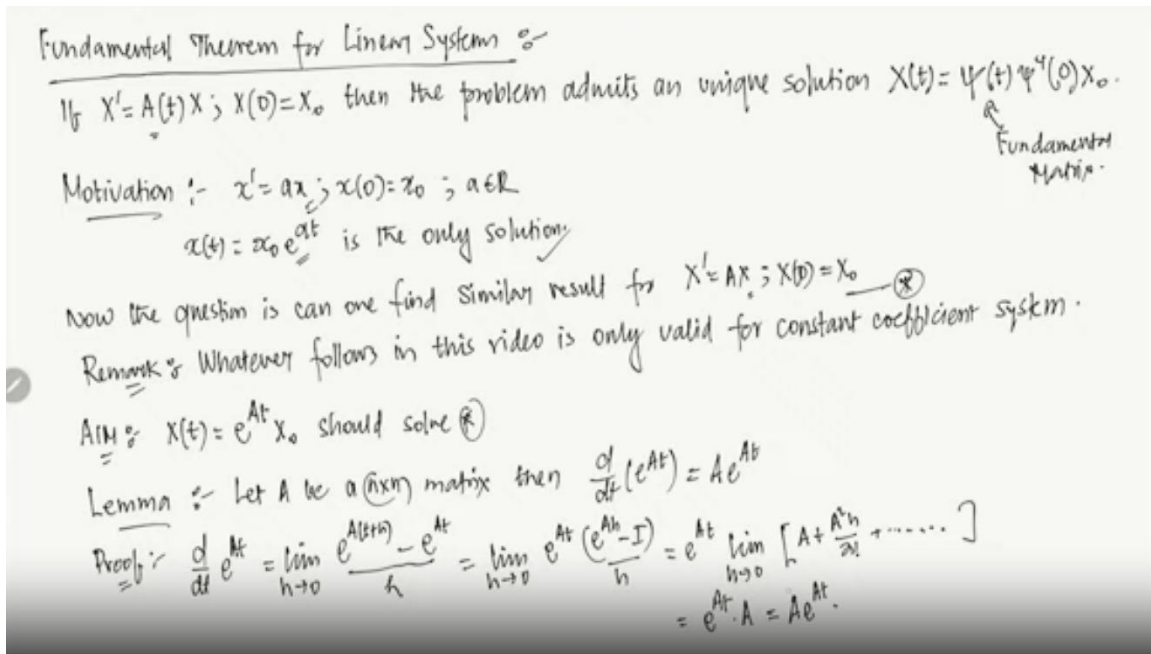 Fundamental Theorem for Linear Systems :-
If X' = A(t)X ; X(0) = X₀ then the problem admits an unique solution X(t) = ψ(t) ψ⁻¹(0) X₀.
Fundamental
Matrix.
Motivation :- x' = ax ; x(0) = x₀ ; a∈R
x(t) = x₀ e^{at} is the only solution
Now the question is can one find similar result for X' = AX ; X(0) = X₀ — (*)
Remark : Whatever follows in this video is only valid for constant coefficient system.
AIM : X(t) = e^{At} X₀ should solve (*)
Lemma :- Let A be a (n×n) matrix then d/dt (e^{At}) = A e^{At}
Proof :- d/dt e^{At} = lim_{h→0} (e^{A(t+h)} - e^{At})/h = lim_{h→0} e^{At} (e^{Ah} - I)/h = e^{At} lim_{h→0} [A + A²h/2! + .......]
= e^{At}.A = A e^{At}.